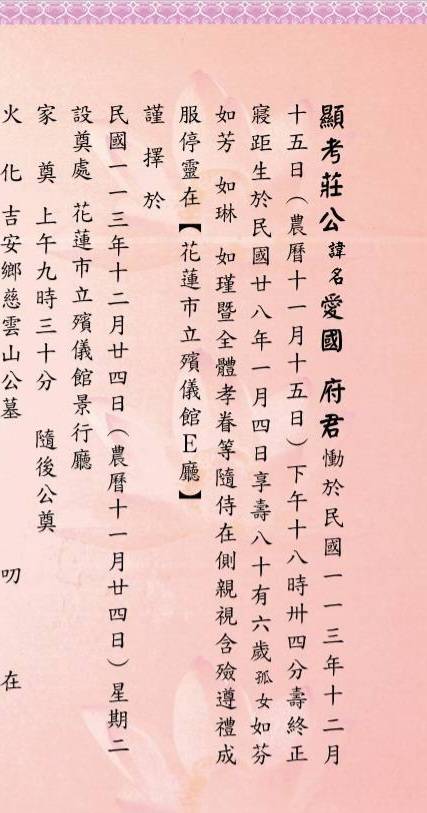 顯考莊公諱名愛國 府君慟於民國一一三年十二月
十五日（農曆十一月十五日）下午十八時卅四分壽終正
寢距生於民國廿八年一月四日享壽八十有六歲孤女如芬
如芳 如琳 如瑾暨全體孝眷等隨侍在側親視含殮遵禮成
服停靈在【花蓮市立殯儀館E廳】
謹擇於
民國一一三年十二月廿四日（農曆十一月廿四日）星期二
設奠處 花蓮市立殯儀館景行廳
家 奠 上午九時三十分 隨後公奠
火 化 吉安鄉慈雲山公墓 叨 在